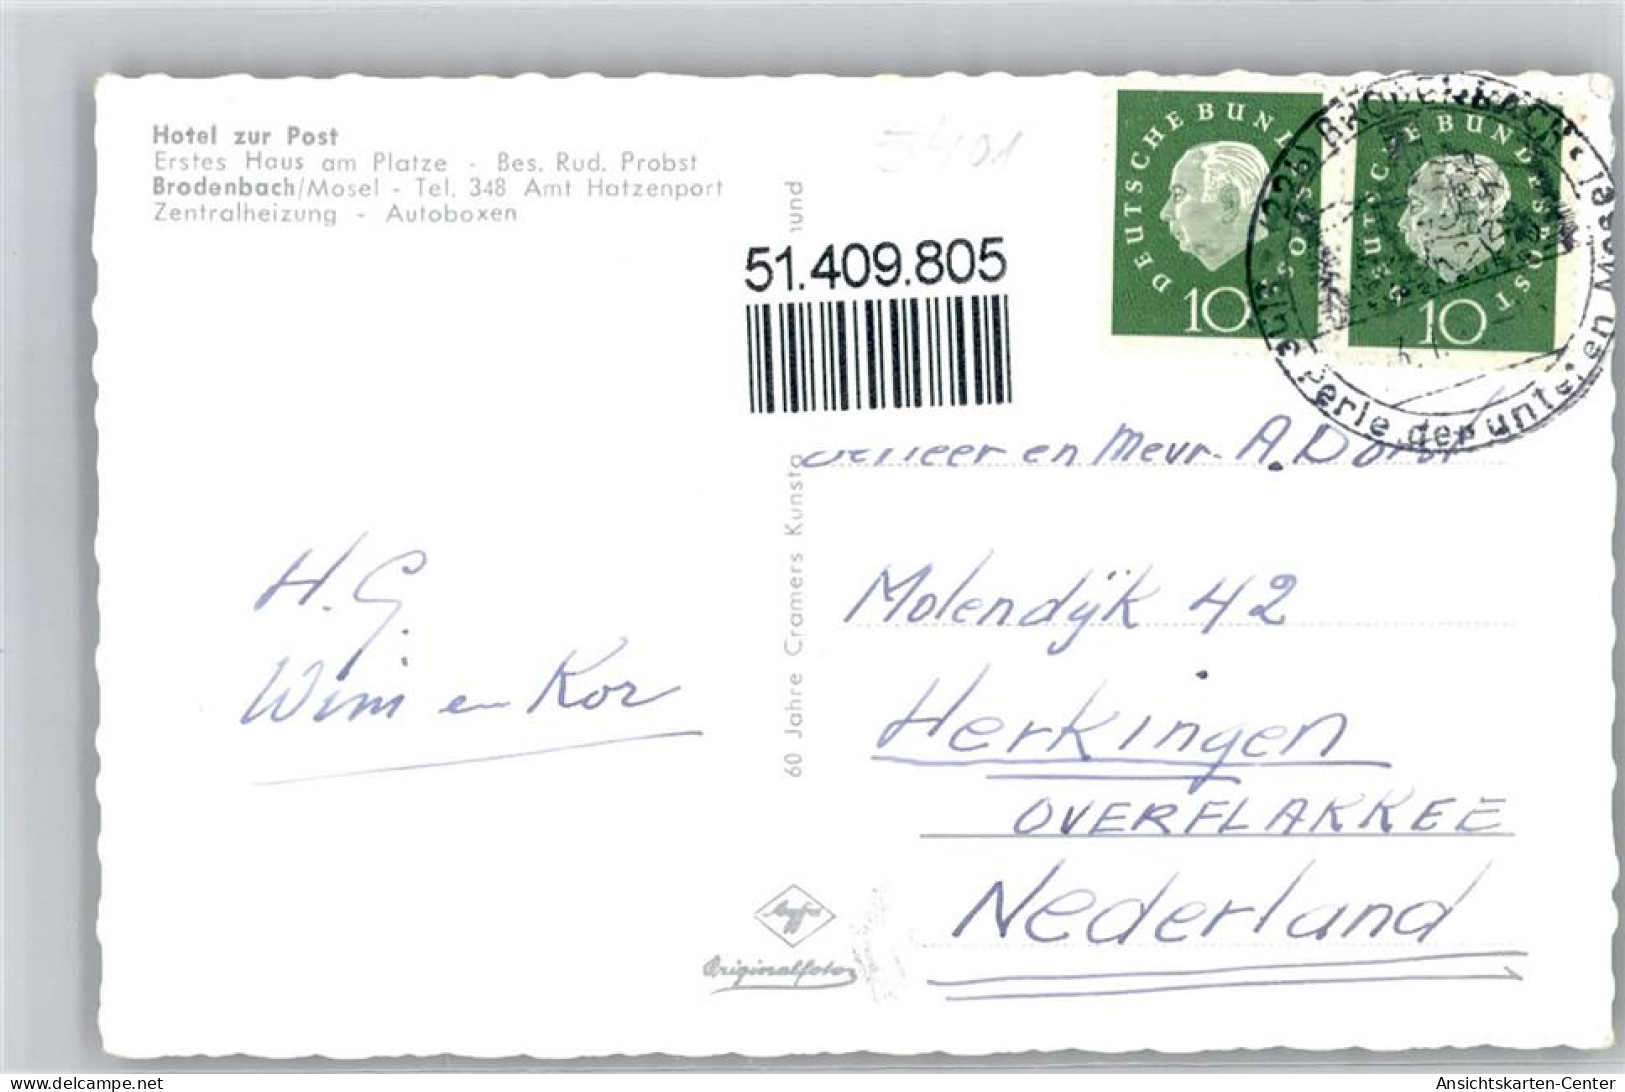 Hotel zur Post
Erstes Haus am Platze - Bes. Rud. Probst
Brodenbach/Mosel - Tel. 348 Amt Hatzenport
Zentralheizung - Autoboxen
51.409.805
60 Jahre Cramers Kunsta
mund
DEUTSCHE BUNDESPOST
10
DEUTSCHE BUNDESPOST
10
(22b) BRODENBACH
Perle der unteren Mosel
en Mevr. A.
H. G.
Wim en Kor
Molendijk 42
Herkingen
OVERFLAKKEE
Nederland
Agfa
Originalfoto
Ansichtskarten-Center